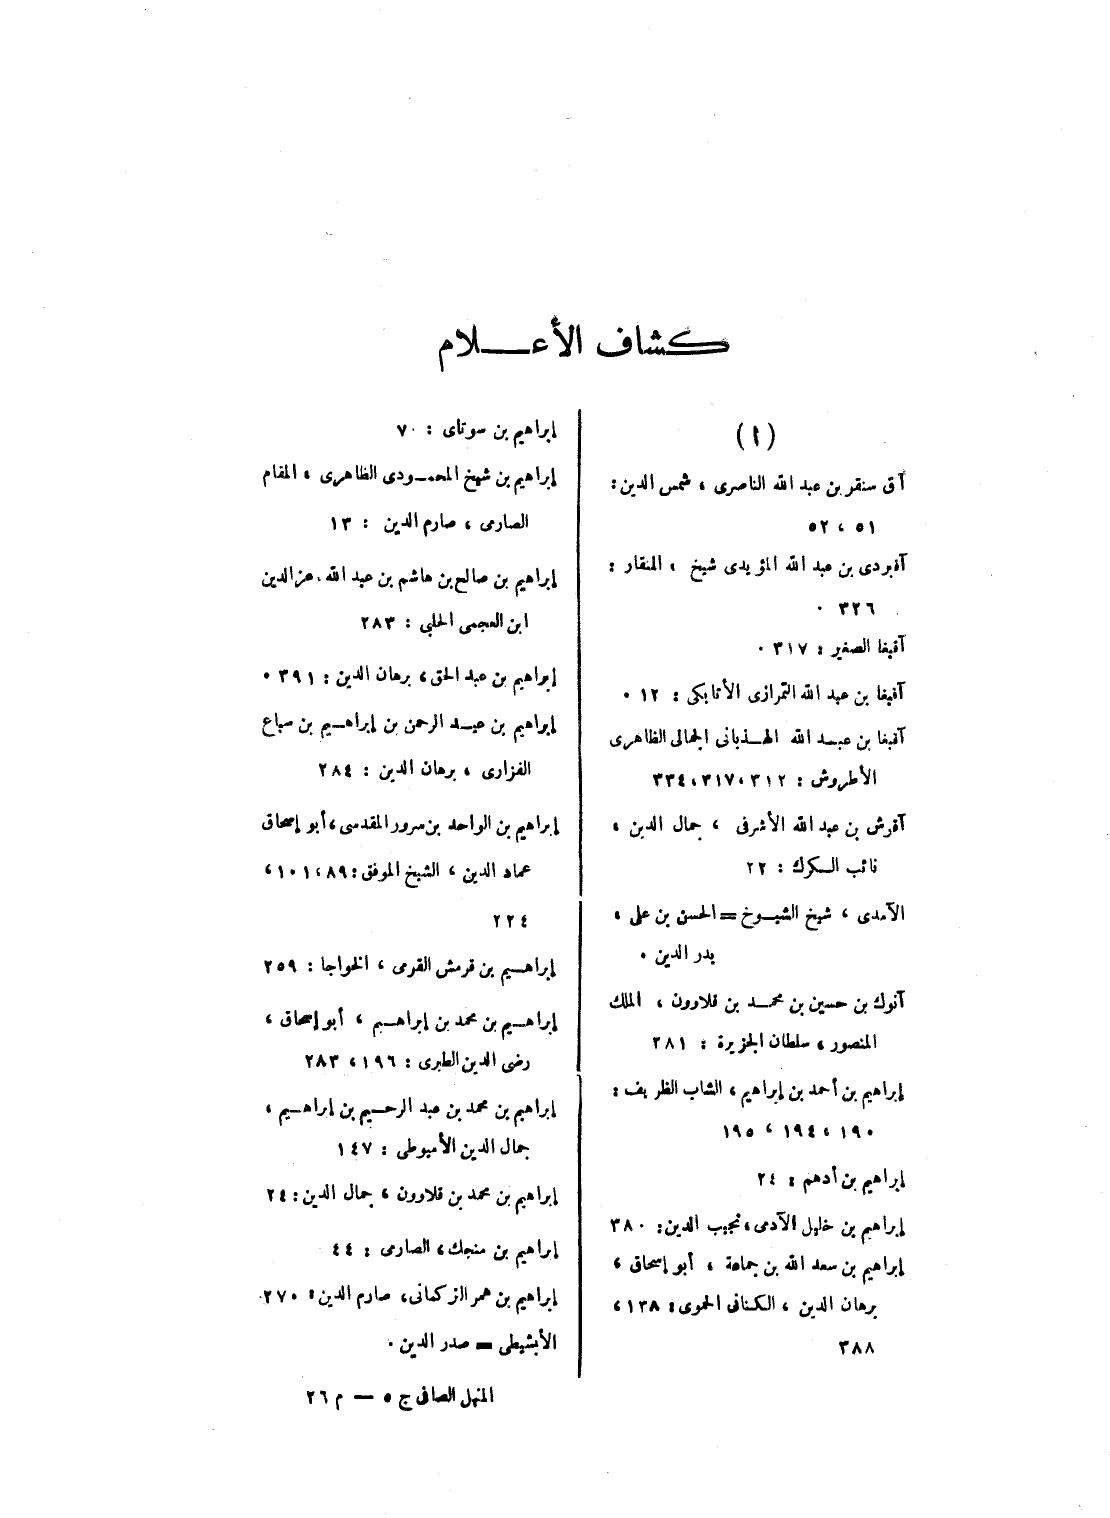 كشاف الأعلام
(ا)
آق سنقر بن عبد الله الناصرى ، شمس الدين :
٥١ ، ٥٢
آقبردى بن عبد الله المؤيدى شيخ ، المنقار :
٣٢٦ ٠
آقبغا الصغير : ٣١٧ ٠
آقبغا بن عبد الله التمرازى الأتابكى : ١٢ ٠
آقبغا بن عبد الله الهذبانى الجمالى الظاهرى
الأطروش : ٣١٢ ، ٣١٧ ، ٣٣٤
آقوش بن عبد الله الأشرفى ، جمال الدين ،
نائب الكرك : ٢٢
الآمدى ، شيخ الشيوخ = الحسن بن على ،
بدر الدين ٠
آنوك بن حسين بن محمد بن قلاوون ، الملك
المنصور ، سلطان الجزيرة : ٢٨١
إبراهيم بن أحمد بن إبراهيم ، الشاب الظريف :
١٩٠ ، ١٩٤ ، ١٩٥
إبراهيم بن أدهم : ٢٤
إبراهيم بن خليل الآدمى ، نجيب الدين : ٣٨٠
إبراهيم بن سعد الله بن جماعة ، أبو إسحاق ،
برهان الدين ، الكنانى الحموى : ١٣٨ ،
٣٨٨
إبراهيم بن سوتاى : ٧٠
إبراهيم بن شيخ المحمودى الظاهرى ، المقام
الصارمى ، صارم الدين : ١٣
إبراهيم بن صالح بن هاشم بن عبد الله . عز الدين
ابن العجمى الحلبى : ٢٨٣
إبراهيم بن عبد الحق ، برهان الدين : ٣٩١ ٠
إبراهيم بن عبد الرحمن بن إبراهيم بن سباع
الفزارى ، برهان الدين : ٢٨٤
إبراهيم بن الواحد بن سرور المقدسى ، أبو إسحاق
عماد الدين ، الشيخ الموفق : ٨٩ ، ١٠١ ،
٢٢٤
إبراهيم بن قرمش القرمى ، الخواجا : ٢٥٩
إبراهيم بن محمد بن إبراهيم ، أبو إسحاق ،
رضى الدين الطبرى : ١٩٦ ، ٢٨٣
إبراهيم بن محمد بن عبد الرحيم بن إبراهيم ،
جمال الدين الأميوطى : ١٤٧
إبراهيم بن محمد بن قلاوون ، جمال الدين : ٢٤
إبراهيم بن منجك ، الصارمى : ٤٤
إبراهيم بن همر التركمانى ، صارم الدين : ٢٧٠
الأبشيطى = صدر الدين ٠
المنهل الصافى ج ٥ — م ٢٦